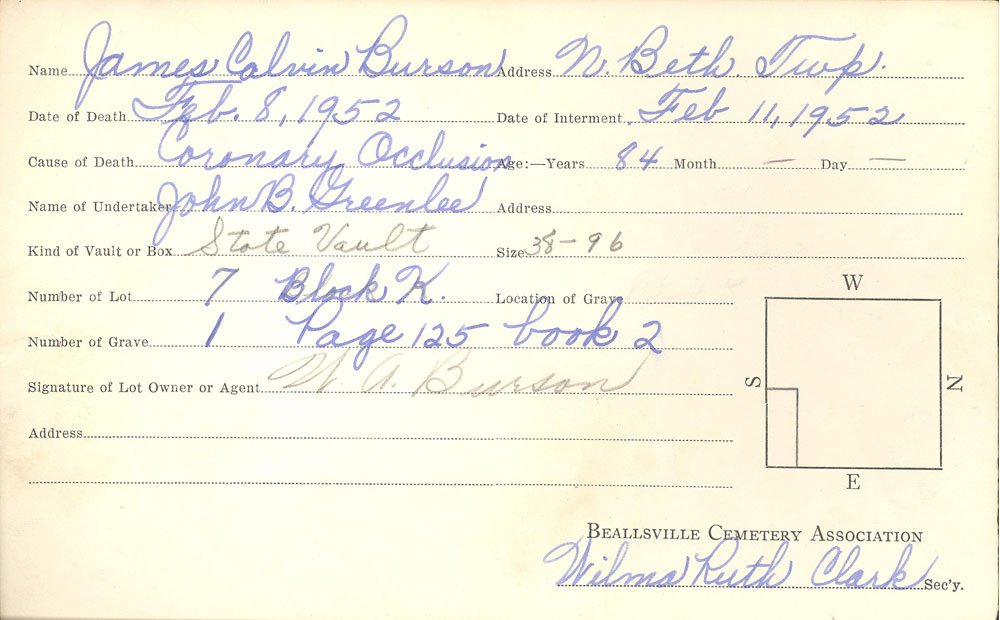 Name James Calvin Burson Address N. Beth. Twp.
Date of Death Feb. 8, 1952 Date of Interment Feb 11, 1952
Cause of Death Coronary Occlusion Age:—Years 84 Month — Day —
Name of Undertaker John B. Greenlee Address
Kind of Vault or Box State Vault Size 38-96
Number of Lot 7 Block K. Location of Grave
Number of Grave 1 Page 125 book 2
Signature of Lot Owner or Agent W. A. Burson
Address
W
S
N
E
BEALLSVILLE CEMETERY ASSOCIATION
Wilma Ruth Clark Sec'y.